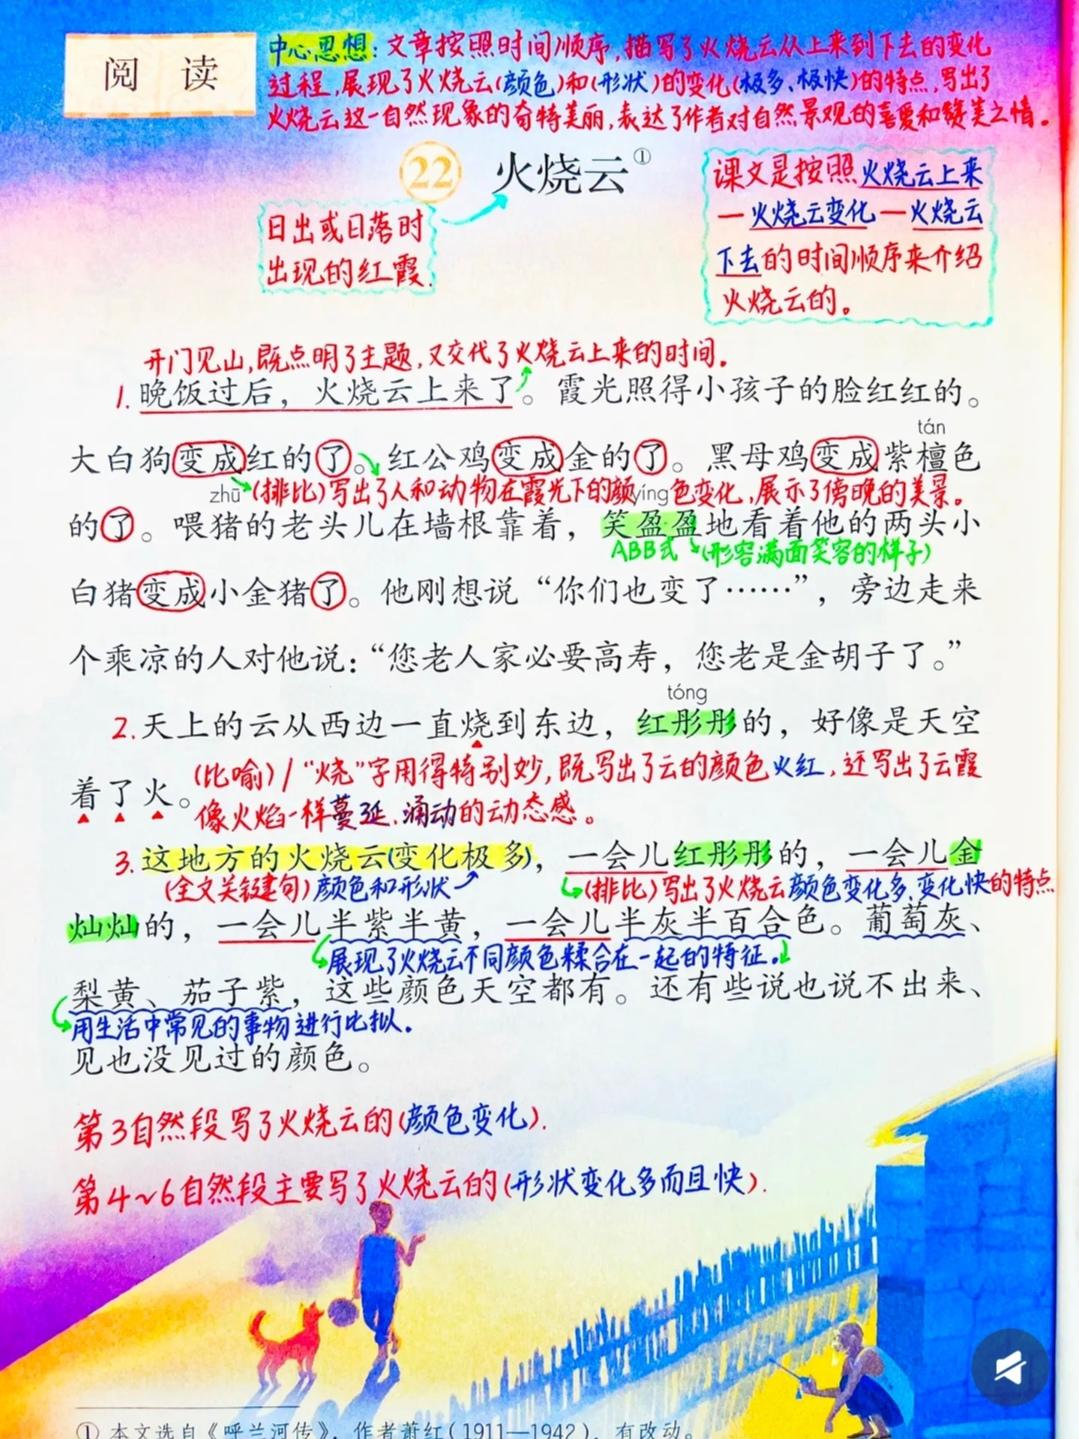 阅 读
中心思想：文章按照时间顺序，描写了火烧云从上来到下去的变化
过程，展现了火烧云(颜色)和(形状)的变化(极多、极快)的特点，写出了
火烧云这一自然现象的奇特美丽，表达了作者对自然景观的喜爱和赞美之情。
22 火烧云①
日出或日落时
出现的红霞.
课文是按照火烧云上来
—火烧云变化—火烧云
下去的时间顺序来介绍
火烧云的。
开门见山，既点明了主题，又交代了火烧云上来的时间.
1.晚饭过后，火烧云上来了。霞光照得小孩子的脸红红的。
tán
大白狗变成红的了。红公鸡变成金的了。黑母鸡变成紫檀色
(排比)写出了人和动物在霞光下的颜色变化，展示了傍晚的美景。
zhū yíng
的了。喂猪的老头儿在墙根靠着，笑盈盈地看着他的两头小
ABB式 (形容满面笑容的样子)
白猪变成小金猪了。他刚想说“你们也变了……”，旁边走来
个乘凉的人对他说：“您老人家必要高寿，您老是金胡子了。”
tóng
2.天上的云从西边一直烧到东边，红彤彤的，好像是天空
(比喻)/“烧”字用得特别妙，既写出了云的颜色火红，还写出了云霞
着了火。
像火焰一样蔓延、涌动的动态感。
3.这地方的火烧云(变化极多)，一会儿红彤彤的，一会儿金
(全文关键句)颜色和形状
(排比)写出了火烧云颜色变化多、变化快的特点
灿灿的，一会儿半紫半黄，一会儿半灰半百合色。葡萄灰、
展现了火烧云不同颜色糅合在一起的特征。
梨黄、茄子紫，这些颜色天空都有。还有些说也说不出来、
用生活中常见的事物进行比拟.
见也没见过的颜色。
第3自然段写了火烧云的(颜色变化).
第4~6自然段主要写了火烧云的(形状变化多而且快).
① 本文选自《呼兰河传》，作者萧红(1911—1942)，有改动。